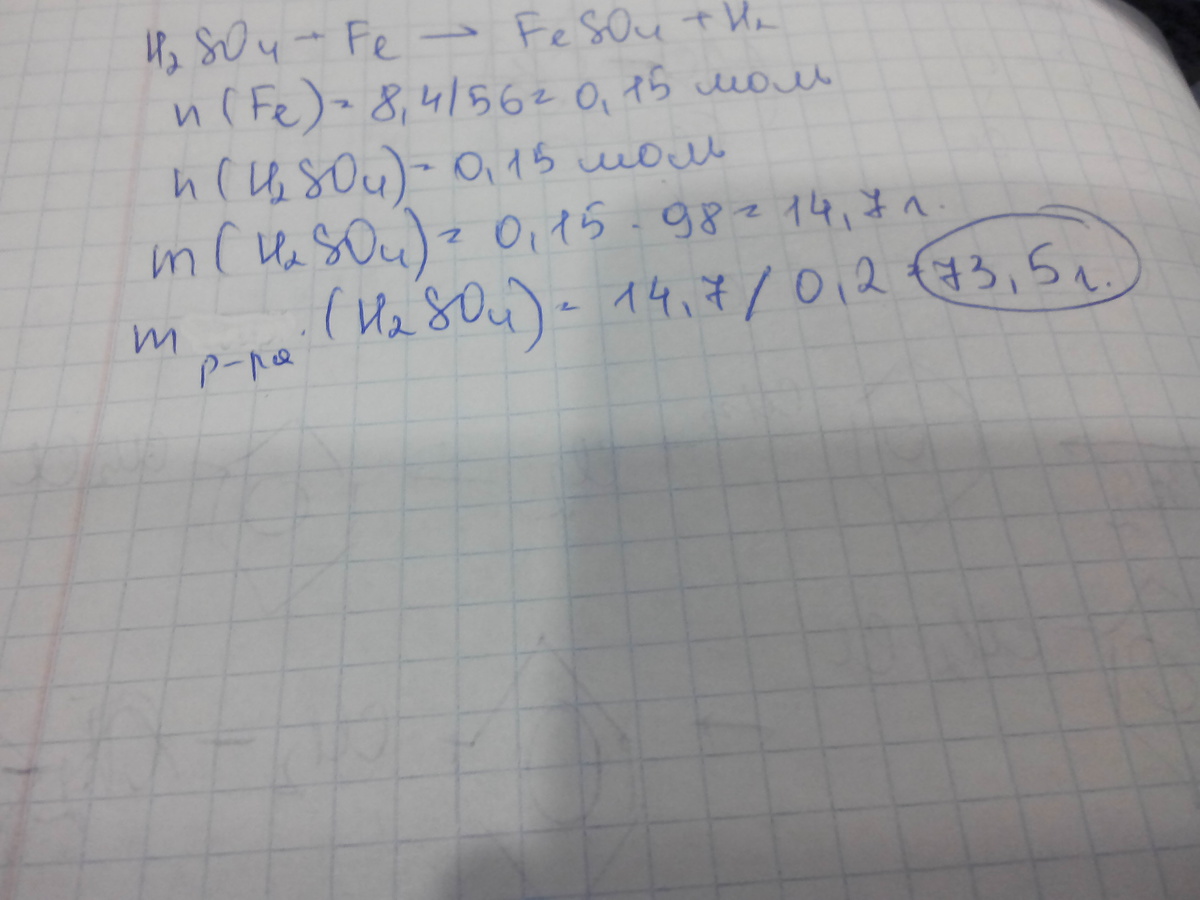 H₂SO₄ + Fe → FeSO₄ + H₂
n(Fe) = 8,4/56 = 0,15 моль
n(H₂SO₄) = 0,15 моль
m(H₂SO₄) = 0,15 · 98 = 14,7 г.
m р-ра (H₂SO₄) = 14,7 / 0,2 = 73,5 г.